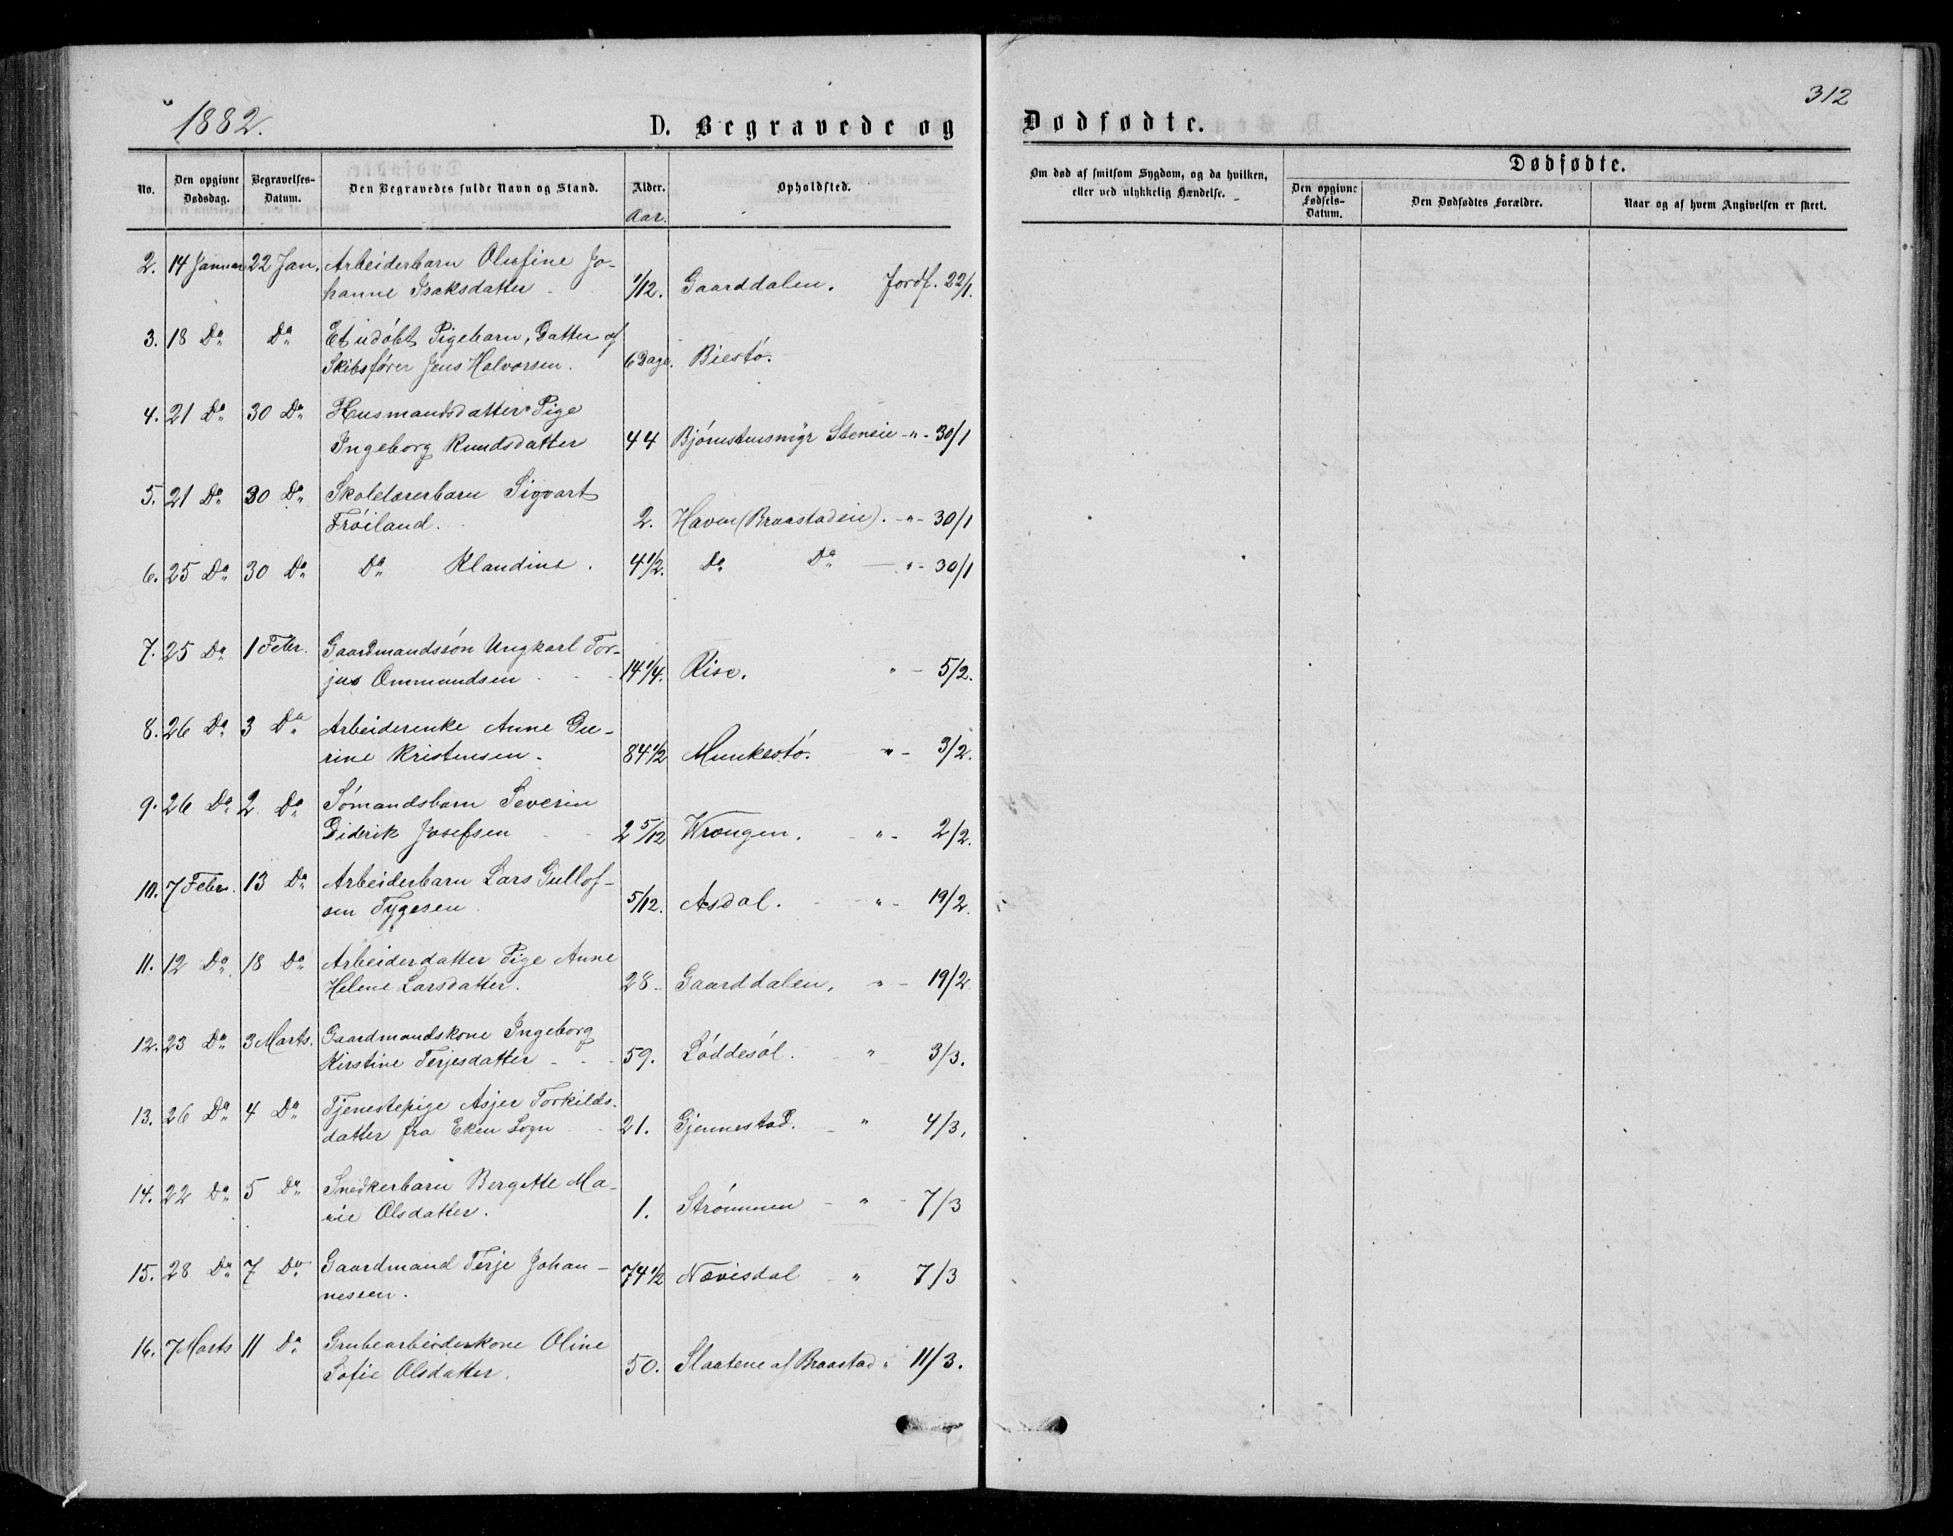 1882.
D. Begravede og
Dødfødte.
312
No.
Den opgivne Dødsdag.
Begravelses-Datum.
Den Begravedes fulde Navn og Stand.
Alder.
Opholdsted.
Aar.
Om død af smitsom Sygdom, og da hvilken, eller ved ulykkelig Hændelse.
Dødfødte.
Den opgivne Fødsels-Datum.
Den Dødfødtes Forældre.
Naar og af hvem Angivelsen er skeet.
2. 14 Januar 22 Jan. Arbeiderbarn Olufine Jo-
hanne Isaksdatter 1/12. Gaarddalen. Jordf. 22/1.
3. 18 Do Do Et udøbt Pigebarn, Datter af
Skibsfører Jens Halvorsen. 6 Dage. Biestø.
4. 21 Do 30 Do Husmandsdatter Pige
Ingeborg Knudsdatter 44 Bjørnstensmyr Stenseie -"- 30/1
5. 21 Do 30 Do Skolelærerbarn Sigvart
Frøiland. 2. Haven (Braastadeie). -"- 30/1
6. 25 Do 30 Do Do Klandine. 4 1/2. Do Do -"- 30/1
7. 25 Do 1 Febr. Gaardmandssøn Ungkarl Tor-
jus Ommundsen 14 1/4. Rise. " - 5/2.
8. 26 Do 3 Do Arbeiderenke Anne Gu-
rine Kristensen. 84 1/2 Munkestø. " - 3/2.
9. 26 Do 2 Do Sømandsbarn Severin
Diderik Josefsen 2 5/12 Wrengen. - " - 2/2.
10. 7 Febr. 13 Do Arbeiderbarn Lars Gullof-
sen Tygesen. 5/12. Asdal. - " - 19/2.
11. 12 Do 18 Do Arbeiderdatter Pige Anne
Helene Larsdatter. 28. Gaarddalen, " - 19/2.
12. 23 Do 3 Marts. Gaardmandskone Ingeborg
Kirstine Terjesdatter 59. Løddesøl. " 3/3.
13. 26 Do 4 Do Tjenestepige Asjer Torkilds-
datter fra Eken Sogn 21. Gjennestad. " 4/3.
14. 22 Do 5 Do Snedkerbarn Bergitte Ma-
rie Olsdatter. 1. Strømmen - " - 7/3
15. 28 Do 7 Do Gaardmand Terje Johan-
nessen. 74 1/2 Nævisdal " 7/3
16. 7 Marts 11 Do Grubearbeiderkone Oline
Sofie Olsdatter. 50. Slaatene af Braastad " 11/3.